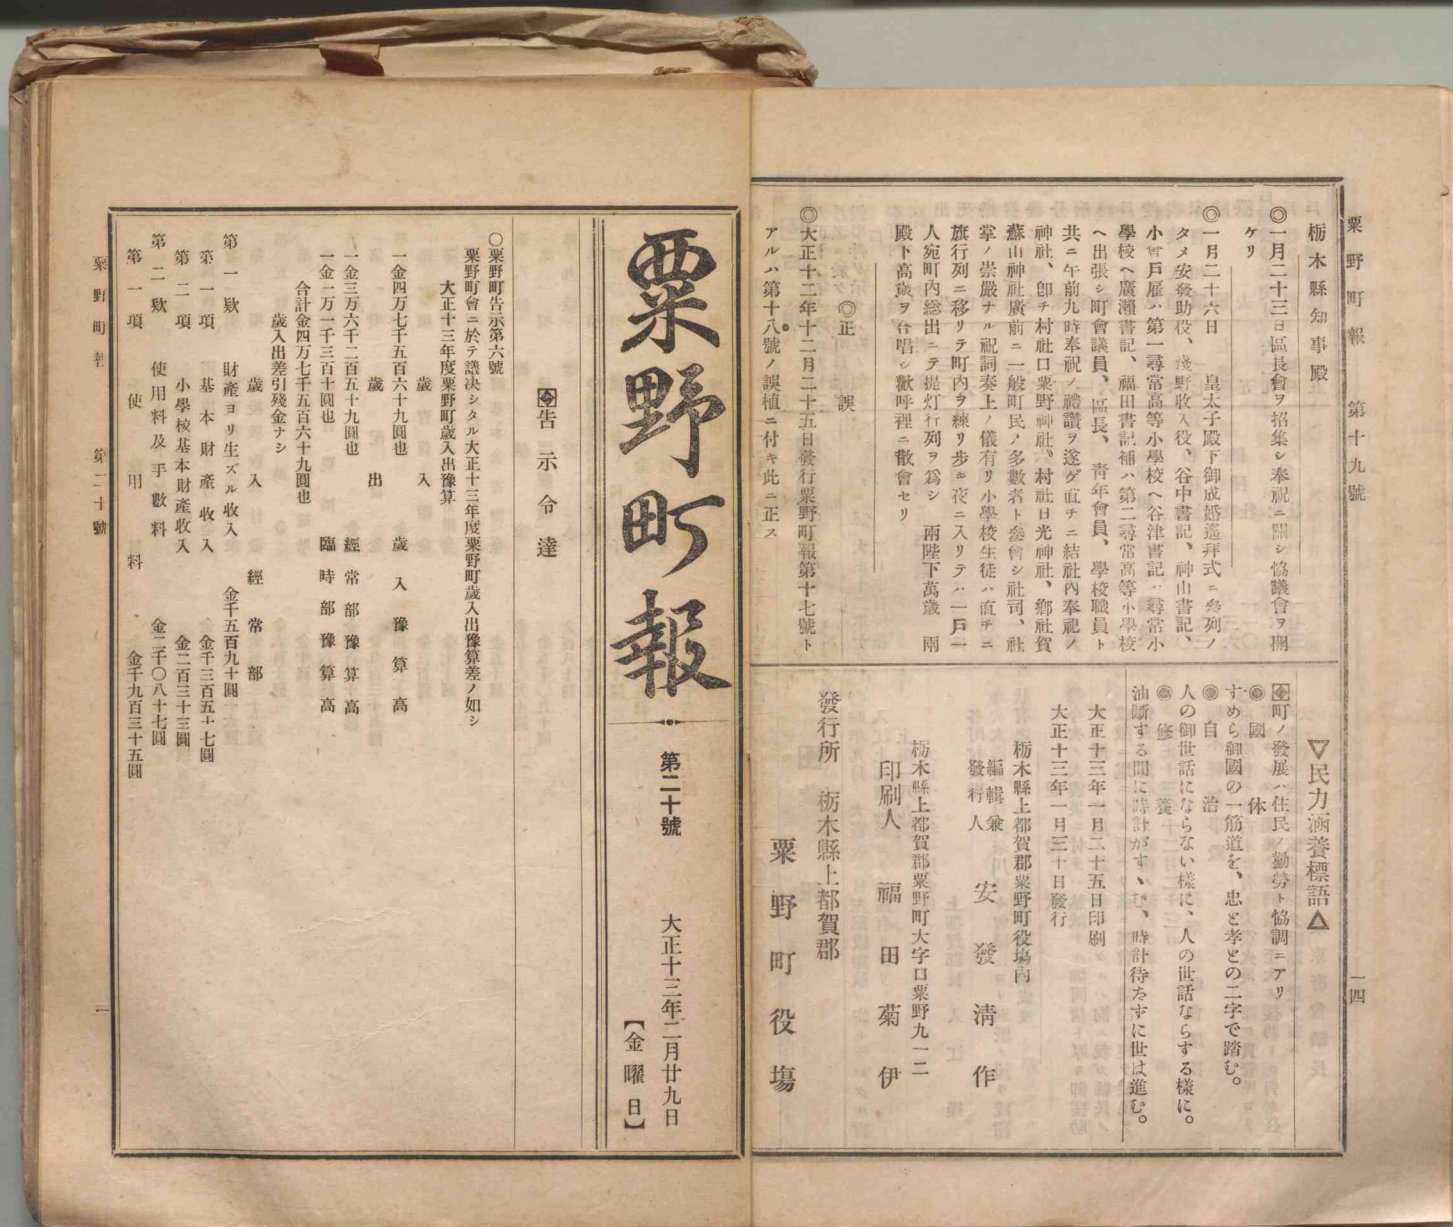 粟野町報　第十九號
一四
栃木縣知事殿
◎一月二十三日區長會ヲ招集シ奉祝ニ關シ協議會ヲ開
ケリ
◎一月二十六日　皇太子殿下御成婚遙拜式ニ參列ノ
タメ安發助役、淺野收入役、谷中書記、神山書記、
小曾戸雇ハ第一尋常高等小學校ヘ谷津書記ハ尋常小
學校ヘ廣瀨書記、福田書記補ハ第二尋常高等小學校
ヘ出張シ町會議員、區長、青年會員、學校職員ト
共ニ午前九時奉祝ノ禮讃ヲ遂ゲ直チニ結社內奉祀ノ
神社、卽チ村社口粟野神社、村社日光神社、鄕社賀
蘇山神社廣前ニ一般町民ノ多數者ト參會シ社司、社
掌ノ崇嚴ナル祝詞奏上ノ儀有リ小學校生徒ハ直チニ
旗行列ニ移リテ町內ヲ練リ步キ夜ニ入リテハ一戸一
人宛町內總出ニテ提灯行列ヲ爲シ　兩陛下萬歲　兩
殿下高歲ヲ合唱シ歡呼裡ニ散會セリ
◎正　誤
◎大正十二年十二月二十五日發行粟野町報第十七號ト
アルハ第十八號ノ誤植ニ付キ此ニ正ス
▽民力涵養標語△
町ノ發展ハ住民ノ勤勞ト協調ニアリ
◉國　体
すめら御國の一筋道を、忠と孝との二字で踏む。
◉自　治
人の御世話にならない樣に、人の世話ならする樣に。
◉修　養
油斷する間に時計がすゝむ、時計待たずに世は進む。
大正十三年一月二十五日印刷
大正十三年一月三十日發行
栃木縣上都賀郡粟野町役塲內
編輯兼
發行人　安發淸作
栃木縣上都賀郡粟野町大字口粟野九一二
印刷人　福田菊伊
發行所　栃木縣上都賀郡
粟野町役塲
粟野町報
第二十號
大正十三年二月廿九日
【金曜日】
告示令達
○粟野町告示第六號
粟野町會ニ於テ議決シタル大正十三年度粟野町歲入出豫算差ノ如シ
大正十三年度粟野町歲入出豫算
歲　入
一金四万七千五百六十九圓也　歲入豫算高
歲　出
一金三万六千二百五十九圓也　經常部豫算高
一金一万一千三百十圓也　臨時部豫算高
合計金四万七千五百六十九圓也
歲入出差引殘金ナシ
歲　入　經　常　部
第一欵　財產ヨリ生ズル收入　金千五百九十圓
第一項　基本財產收入　金千三百五十七圓
第二項　小學校基本財產收入　金二百三十三圓
第二欵　使用料及手數料　金二千〇八十七圓
第一項　使用料　金千九百三十五圓
粟野町報　第二十號
一